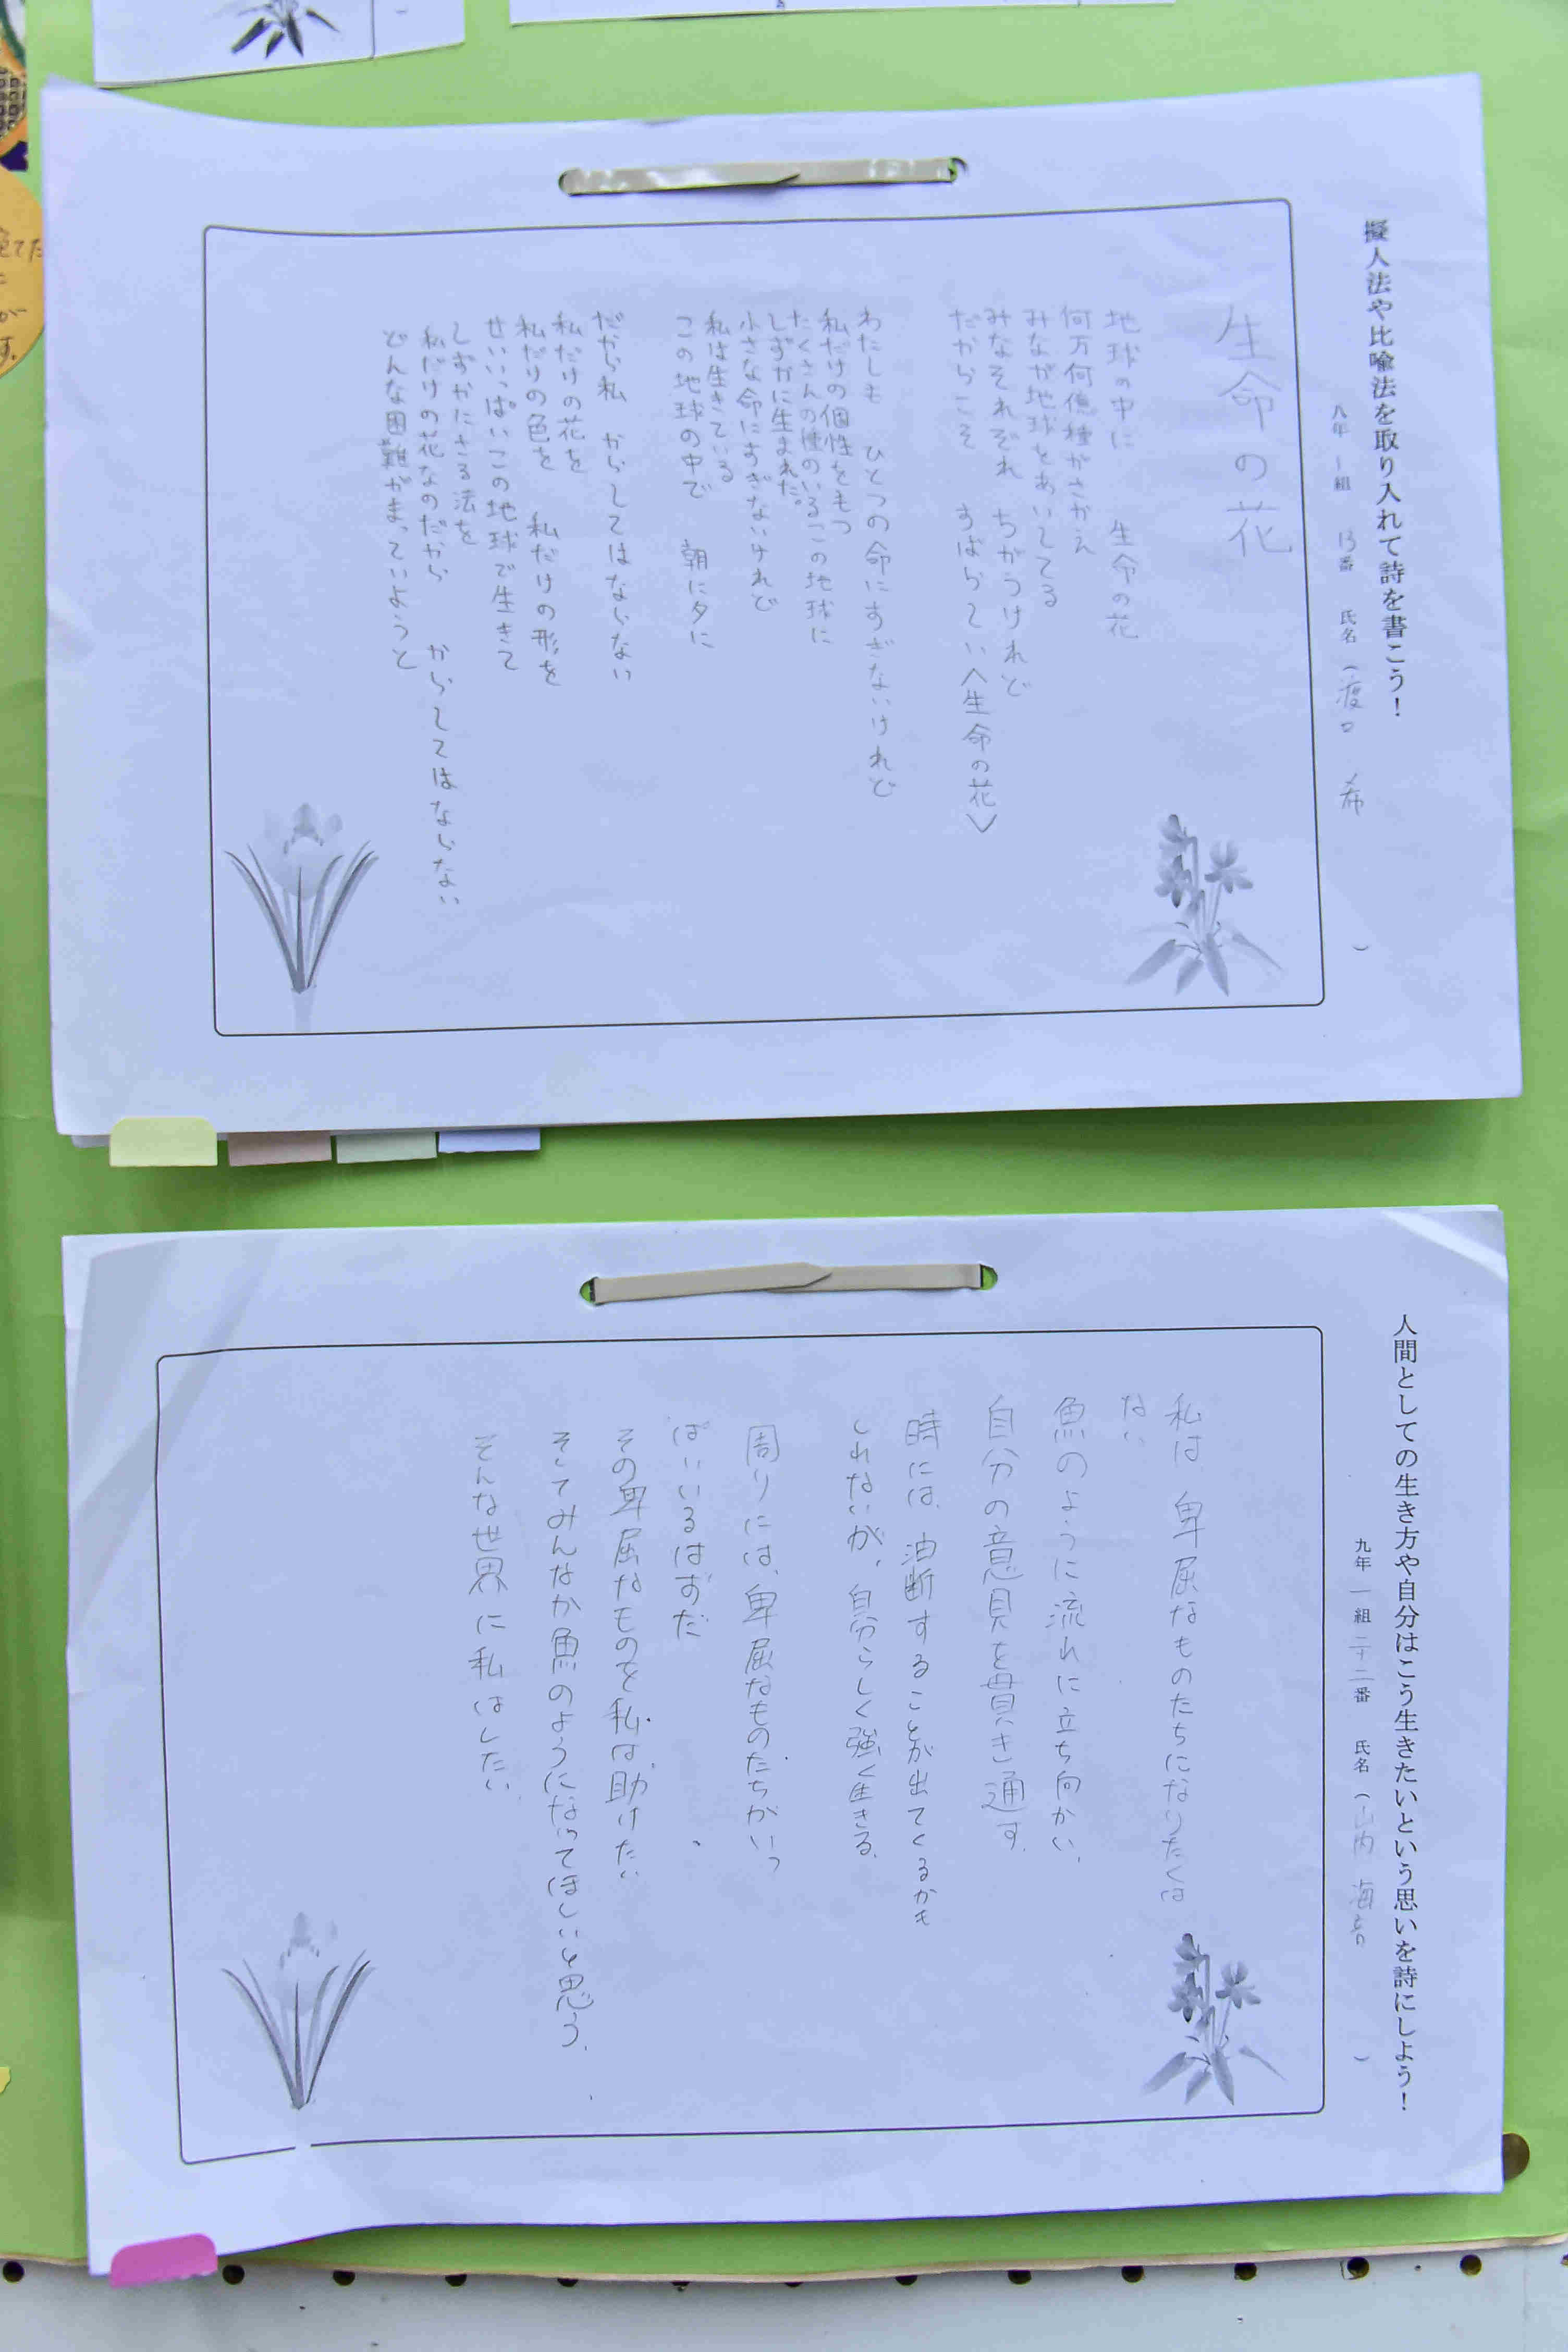 擬人法や比喩法を取り入れて詩を書こう！
八年 1組 13番 氏名（渡口 希）
生命の花
地球の中に 生命の花
何万何億種がさかえ
みなが地球をあいしてる
みなそれぞれ ちがうけれど
だからこそ すばらしい〈生命の花〉
わたしも ひとつの命にすぎないけれど
私だけの個性をもつ
たくさんの種のいるこの地球に
しずかに生まれた。
小さな命にすぎないけれど
私は生きている
この地球の中で 朝に夕に
だから私 からしてはならない
私だけの花を
私だけの色を 私だけの形を
せいいっぱいこの地球で生きて
しずかにさる法を
私だけの花なのだから からしてはならない
どんな困難がまっていようと
人間としての生き方や自分はこう生きたいという思いを詩にしよう！
九年 一組 二十二番 氏名（山内 海音）
私は、卑屈なものたちになりたくは
ない
魚のように流れに立ち向かい、
自分の意見を貫き通す。
時には、油断することが出てくるかも
しれないが、自分らしく強く生きる。
周りには、卑屈なものたちがいっ
ぱいいるはずだ
その卑屈なものを私は助けたい
そしてみんなが魚のようになってほしいと思う。
そんな世界に私はしたい。